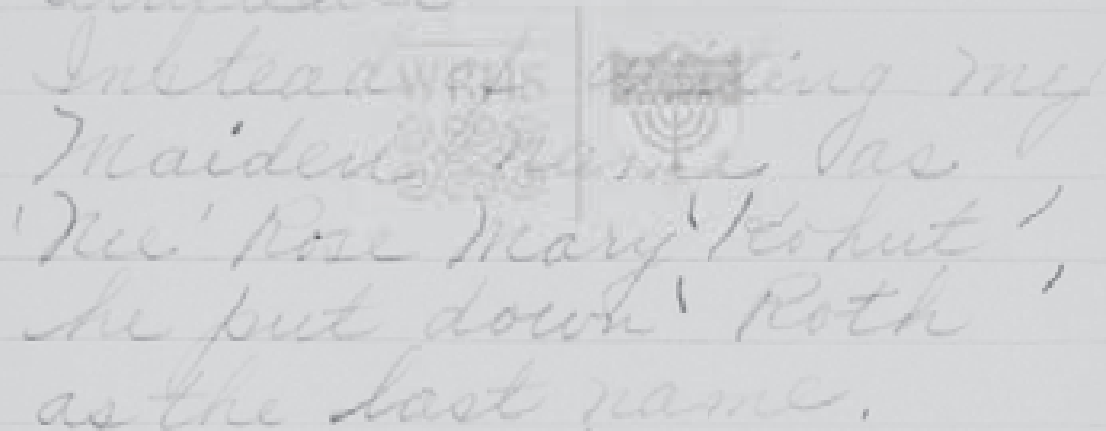 Instead of putting my
Maiden Name as
'Nee' Rose Mary 'Kohut'
he put down 'Roth'
as the last name.